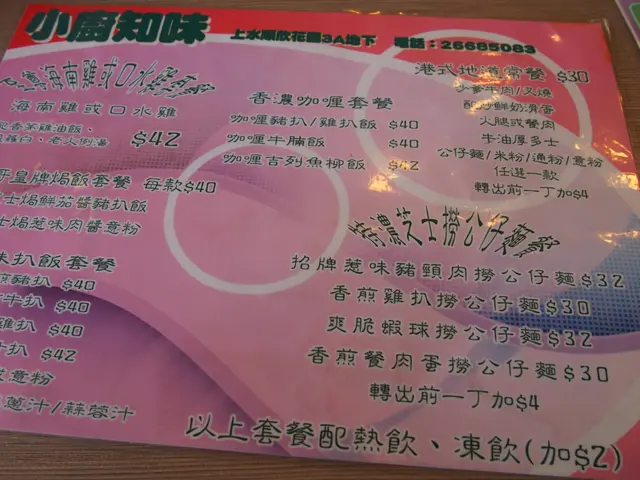 小廚知味
上水順欣花園3A地下 電話：26685083
海南雞或口水雞套餐
海南雞或口水雞
香茅雞油飯、
老火例湯 $42
皇牌焗飯套餐 每款$40
士焗鮮茄醬豬扒飯
士焗惹味肉醬意粉
扒飯套餐
煎豬扒 $40
牛扒 $40
雞扒 $40
扒 $42
意粉
蔥汁/蒜蓉汁
香濃咖喱套餐
咖喱豬扒/雞扒飯 $40
咖喱牛腩飯 $40
咖喱吉列魚柳飯 $42
港式地道常餐 $30
沙爹牛肉/叉燒
配炒鮮奶滑蛋
火腿或餐肉
牛油厚多士
公仔麵/米粉/通粉/意粉
任選一款
轉出前一丁加$4
特濃芝士撈公仔麵餐
招牌惹味豬頸肉撈公仔麵$32
香煎雞扒撈公仔麵$30
爽脆蝦球撈公仔麵$32
香煎餐肉蛋撈公仔麵$30
轉出前一丁加$4
以上套餐配熱飲、凍飲(加$2)